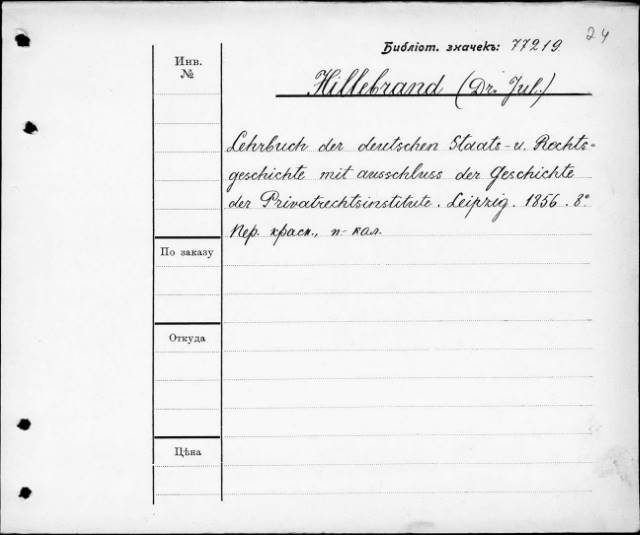 24
Библіот. значекъ: 77219.
Инв.
№
Hillebrand (Dr. Jul.)
Lehrbuch der deutschen Staats- u. Rechts-
geschichte mit ausschluss der Geschichte
der Privatrechtsinstitute. Leipzig. 1856. 8°
Пер. красн., п-кал.
По заказу
Откуда
Цѣна